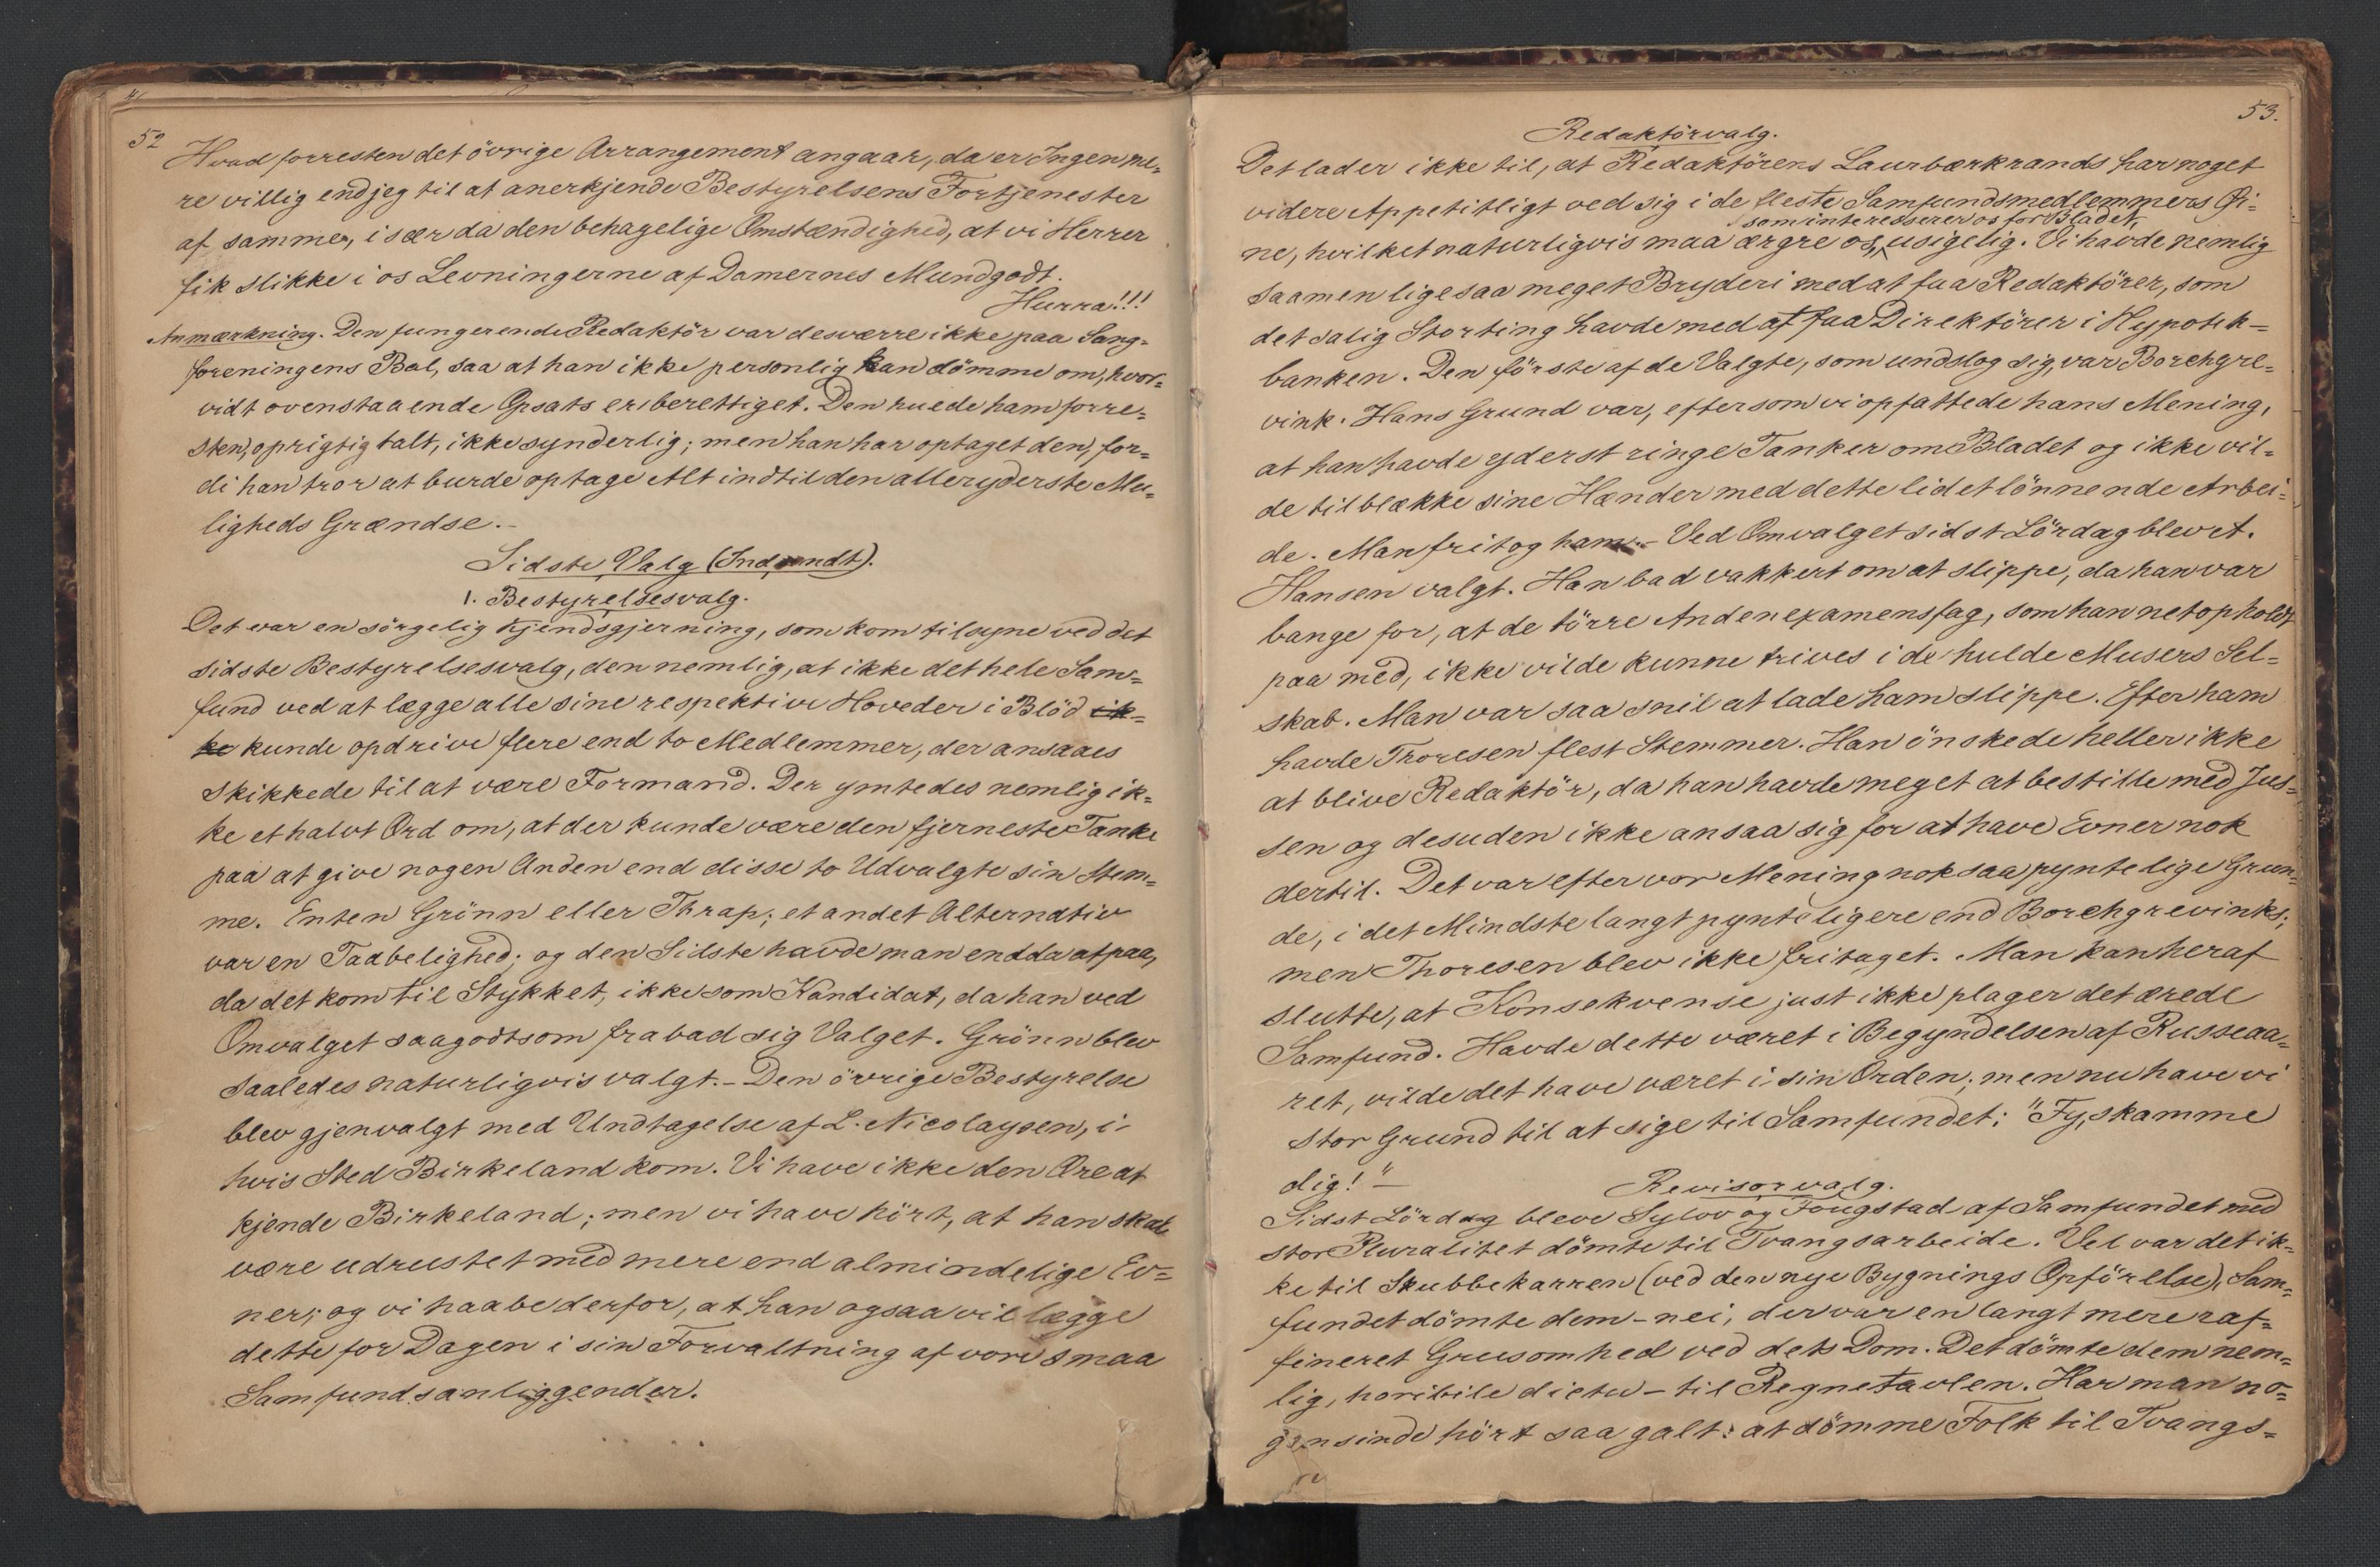 52
Hvad forresten det övrige Arrangement angaar, da er Ingen me-
re villig end jeg til at anerkjende Bestyrelsens Fortjenester
af samme, især da den behagelige Omstændighed, at vi Herrer
fik slikke i os Levningerne af Damernes Mundgodt.
Hurra!!!
Anmærkning. Den fungerende Redaktör var desværre ikke paa Sang-
foreningens Bal, saa at han ikke personlig kan dömme om, hvor-
vidt ovenstaaende Opsats er berettiget. Den huede ham forre-
sten, oprigtig talt, ikke synderlig; men han har optaget den, for-
di han tror at burde optage Alt indtil den alleryderste Mu-
ligheds Grændse.-
Sidste Valg (Indsendt).
1. Bestyrelsesvalg.
Det var en sörgelig Kjendsgjerning, som kom tilsyne ved det
sidste Bestyrelsesvalg, den nemlig, at ikke det hele Sam-
fund ved at lægge alle sine respektive Hoveder i Blöd ik-
ke kunde opdrive flere end to Medlemmer, der ansaaes
skikkede til at være Formand. Der ymtedes nemlig ik-
ke et halvt Ord om, at der kunde være den fjerneste Tanke
paa at give nogen Anden end disse to Udvalgte sin Stem-
me. Enten Grönn eller Thrap; et andet Alternativ
var en Taabelighed; og den Sidste havde man endda at paa,
da det kom til Stykket, ikke som Kandidat, da han ved
Omvalget saagodtsom frabad sig Valget. Grönn blev
saaledes naturligvis valgt.- Den övrige Bestyrelse
blev gjenvalgt med Undtagelse af L. Nicolaysen, i
hvis Sted Birkeland kom. Vi have ikke den Ære at
kjende Birkeland; men vi have hört, at han skal
være udrustet med mere end almindelige Ev-
ner; og vi haabe derfor, at han ogsaa vil lægge
dette for Dagen i sin Forvaltning af vore smaa
Samfundsanliggender.
53.
Redaktörvalg.
Det lader ikke til, at Redaktörens Laurbærkrands har noget
videre Appetitligt ved sig i de fleste Samfundsmedlemmers Øi-
som interesserer os for Bladet,
ne, hvilket naturligvis maa ærgre os, usigelig. Vi havde nemlig
saamen ligesaa meget Bryderi med at faa Redaktörer, som
det salig Storting havde med at faa Direktörer i Hypothek-
banken. Den förste af de Valgte, som undslog sig, var Borchgre-
vink. Hans Grund var, eftersom vi opfattede hans Mening,
at han havde yderst ringe Tanker om Bladet og ikke vil-
de tilblække sine Hænder med dette lidet lönnende Arbei-
de. Man fritog ham.- Ved Omvalget sidst Lördag blev A.
Hansen valgt. Han bad vakkert om at slippe, da han var
bange for, at de törre Andenexamensfag, som han netop holdt
paa med, ikke vilde kunne trives i de hulde Musers Sel-
skab. Man var saa snil at lade ham slippe. Efter ham
havde Thoresen flest Stemmer. Han önskede heller ikke
at blive Redaktör, da han havde meget at bestille med Jus-
sen og desuden ikke ansaa sig for at have Evner nok
dertil. Det var efter vor Mening nok saa pyntelige Grun-
de, i det Mindste langt pynteligere end Borchgrevinks;
men Thoresen blev ikke fritaget. Man kan heraf
slutte, at Konsekvense just ikke plager det ærede
Samfund. Havde dette været i Begyndelsen af Russeaa-
ret, vilde det have været i sin Orden; men nu have vi
stor Grund til at sige til Samfundet: "Fy, skamme
dig!"-
Revisorvalg.
Sidst Lördag bleve Sylow og Fougstad af Samfundet med
stor Pluralitet dömte til Tvangsarbeide. Vel var det ik-
ke til Skubbekarren (ved den nye Bygnings Opförelse), Sam-
fundet dömte dem - nei, der var en langt mere raf-
fineret Grusomhed ved dets Dom. Det dömte dem nem-
lig, horibile dictu - til Regnetavlen. Har man no-
gensinde hört saa galt: at dömme Folk til Tvangs-